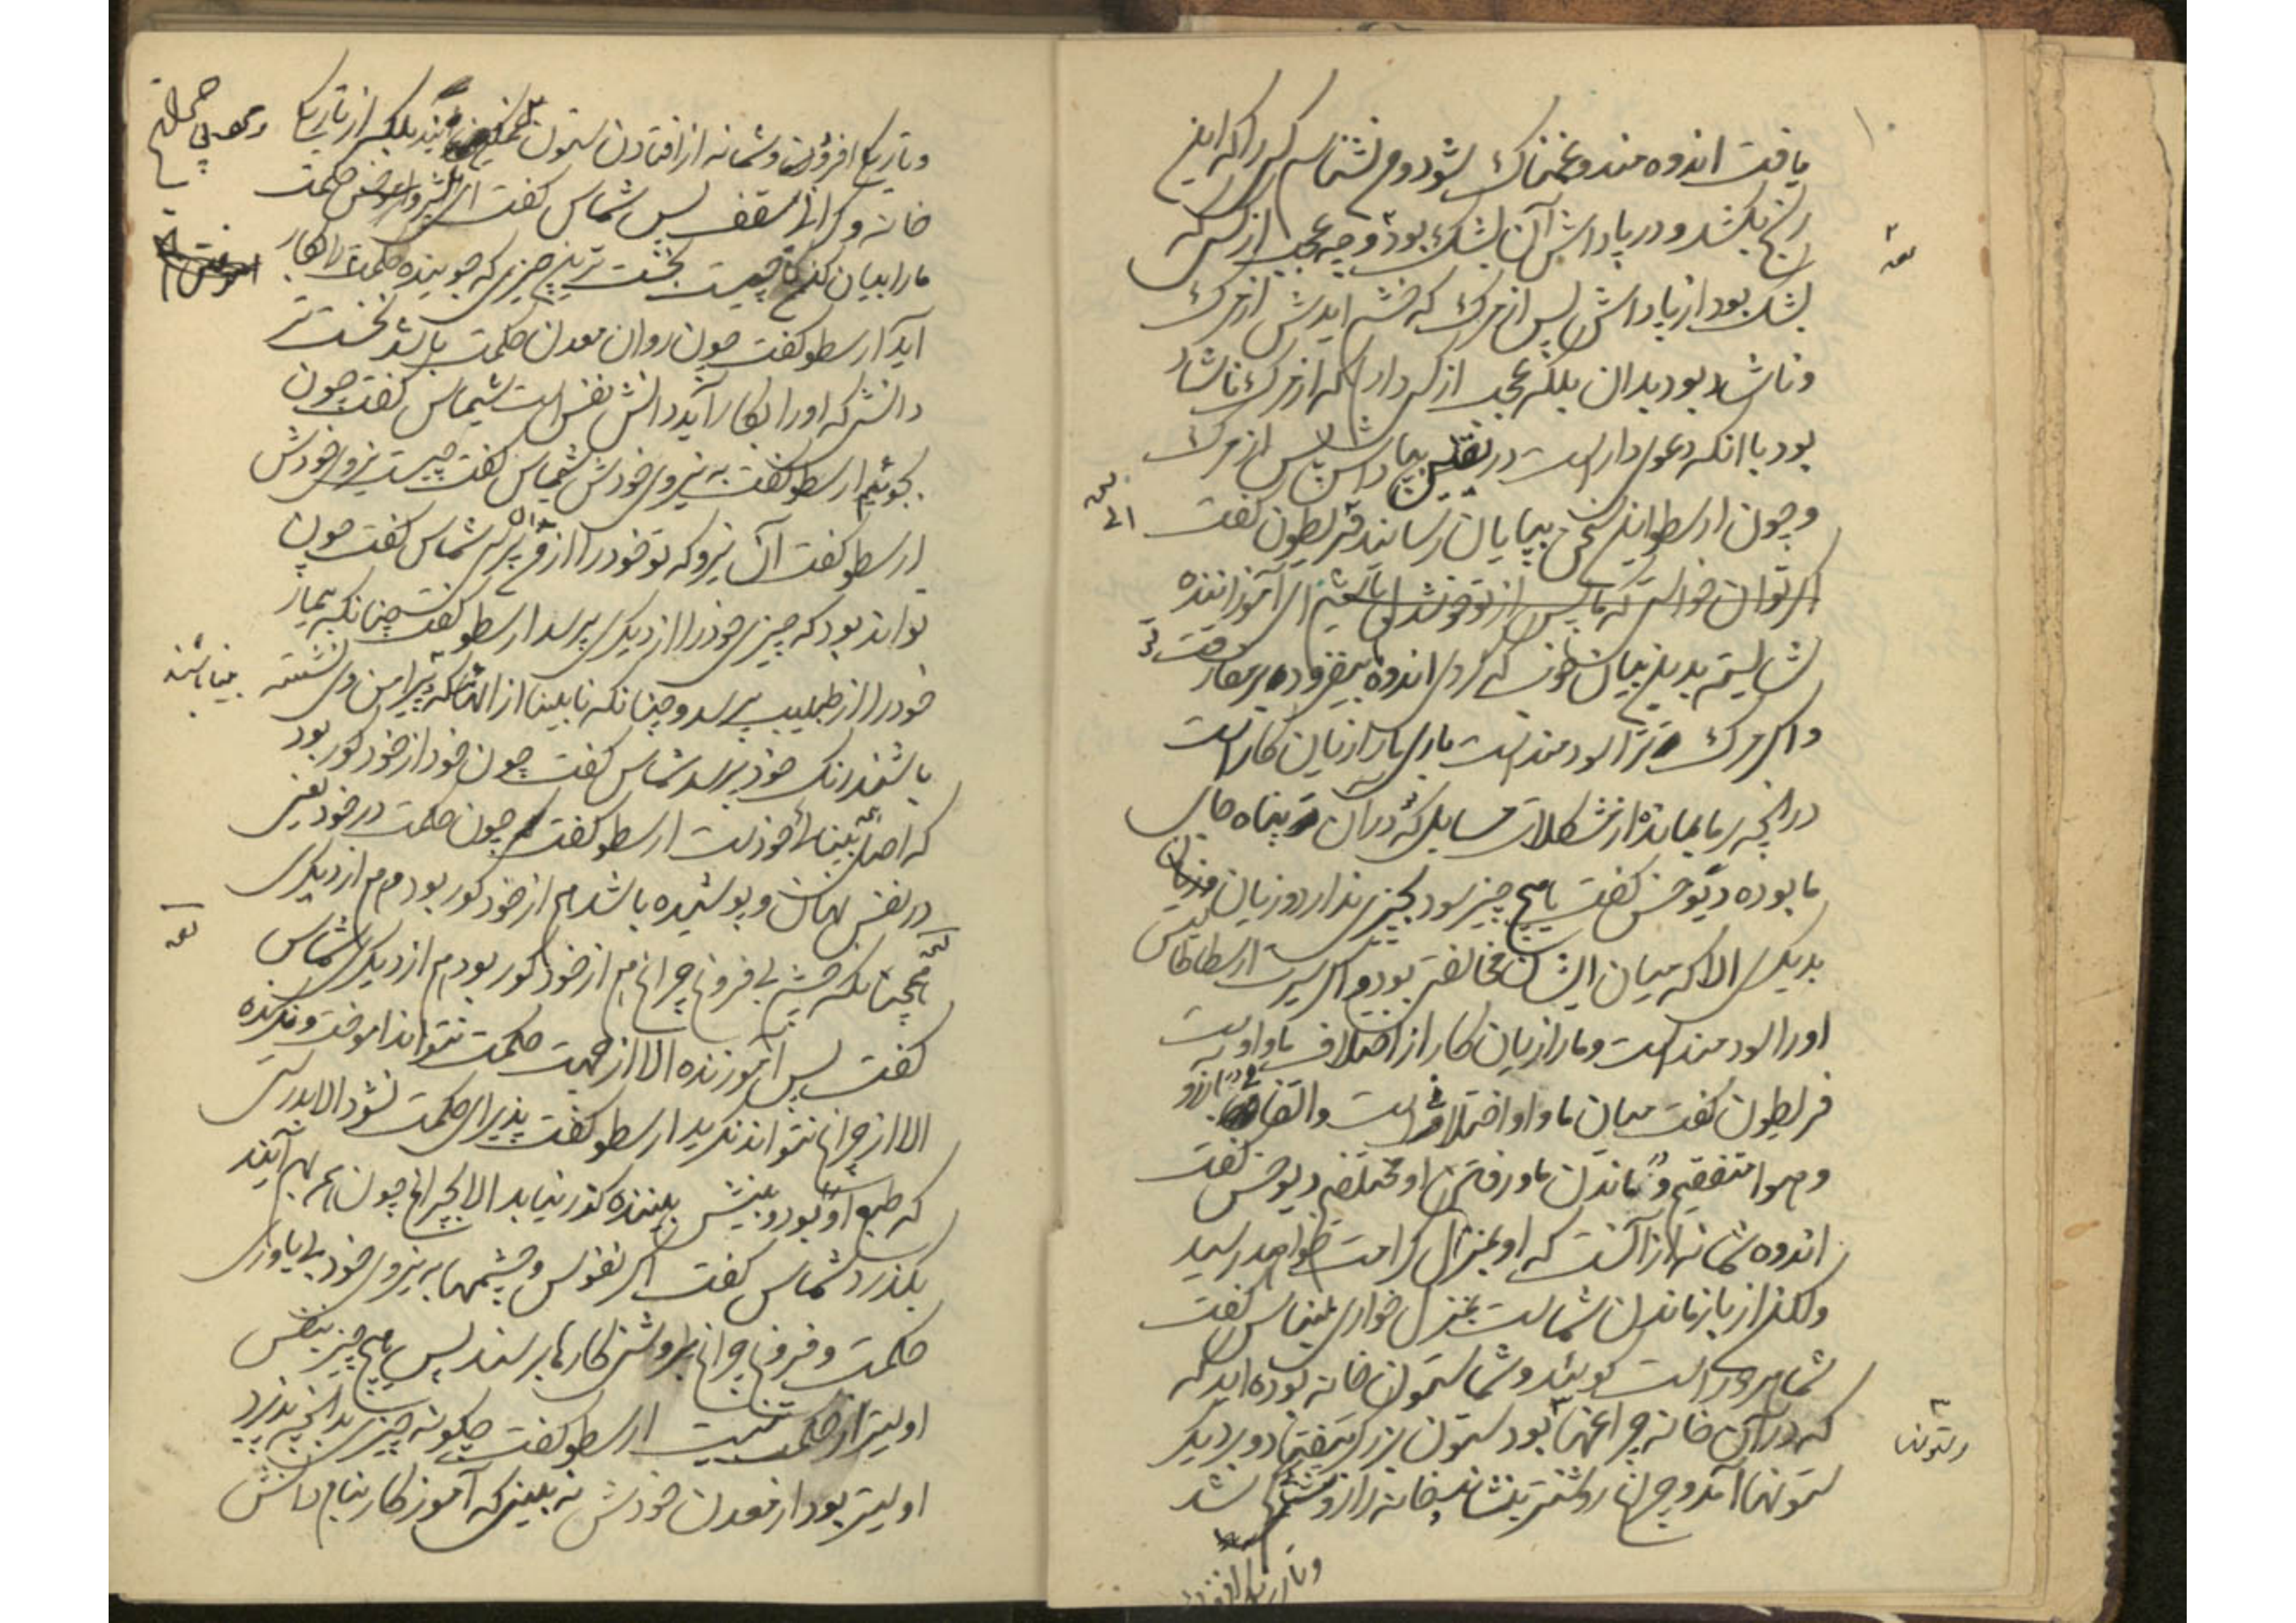 یافت اندوه مند و غمناک شود و من نشناسم کسی را که این
رنج بکشد و در پاداش آن بشک بود و چه عجب از کسی که
بشک بود از پاداش پس از مرگ که خشم ایدش از مرگ
و ناشاد بود بدان بلکه عجب از کسی دارم که از مرگ ناشاد
بود با انکه دعوی دار است در یقین بپاداش پس از مرگ
و چون ارسطو این سخن بپایان رسانید قریطون گفت
اگر توان خواست که ما پس از تو خوشدل باشیم ای آموزاننده
بدین بیان خوش که کردی اندوه بیفزود بر مفارقت تو
و اگر مرگ ترا سودمند است باری ما را زیان کار است
در انچه بر ما بماند از مشکلات مسایل که در آن تو پناه جای
ما بوده دیوجنس گفت هیچ چیز سود بچیزی ندارد و زیان
بدیگری الا که میان ایشان مخالفتی بود و اگر مرگ ارسطاطالیس
او را سودمند است و ما را زیان کار از اختلاف ما و اوست
قریطون گفت میان ما و او اختلاف است و اتفاق در آرزو
و هوا متفقیم و در ماندن ما و رفتن او مختلفیم دیوجنس گفت
اندوه شما نه از آنست که او بمنزل کرامت خواهد رسید
ولکن از بازماندن شماست بمنزل خواری شیماس گفت
شما هر دو راست گوئید و شما ستون خانه بوده اید که
که در آن خانه چراغها بود ستون بزرگ بیفتاد و بر دیگر
ستونها آمد و چراغ روشنتر بنشاند خانه را از روشنی
و ستونها
و تاریکی افزود و شما نه از افتادن ستون غمگین اید بلکه از تاریکی
خانه و گرانی سقف پس شماس گفت ای پیشرو حکمت
ما را بیان کن که چیست نخست ترین چیزی که جوینده حکمت را بکار
آید ارسطو گفت چون روان معدن حکمت باشد نخست تر
دانش که او را بکار آید دانش نفس است شیماس گفت چون
بجوئیم ارسطو گفت به نیروی خودش شیماس گفت چیست نیروی خودش
ارسطو گفت آن نیرو که تو خود را از من پرسی شماس گفت چون
تواند بود که چیزی خود را از دیگری پرسد ارسطو گفت چنانکه بیمار
خود را از طبیب پرسد و چنانکه نابینا از انها که پیرامن وی نشسته
باشند رنگ خود پرسد شماس گفت چون خود از خود کور بود
که اصل بینائی خود است ارسطو گفت چون حکمت در خود یعنی
در نفس نهان و پوشیده باشد هم از خود کور بود هم از دیگری
همچنانکه چشم بی فروغ چراغ هم از خود کور بود هم از دیگری شماس
گفت پس آموزنده الا از جهت حکمت نتواند اموخت و نگرنده
الا از چراغ نتواند نگرید ارسطو گفت پذیرای حکمت نشود الا بدرستی
که طبع او بود و بینش بیننده گذر نیابد الا بچراغ چون هر دو بهم آیند
بگذرد شماس گفت اگر نفوس و چشمها به نیروی خود بی یاوری
حکمت و فروغ چراغ بروشنی کارها برسند پس هیچ چیز بنفس
اولیتر از حکمت نیست ارسطو گفت چگونه چیزی بدانچه پذیرد
اولیتر بود از معدن خودش نه بینی که آموزگار بنام دانش